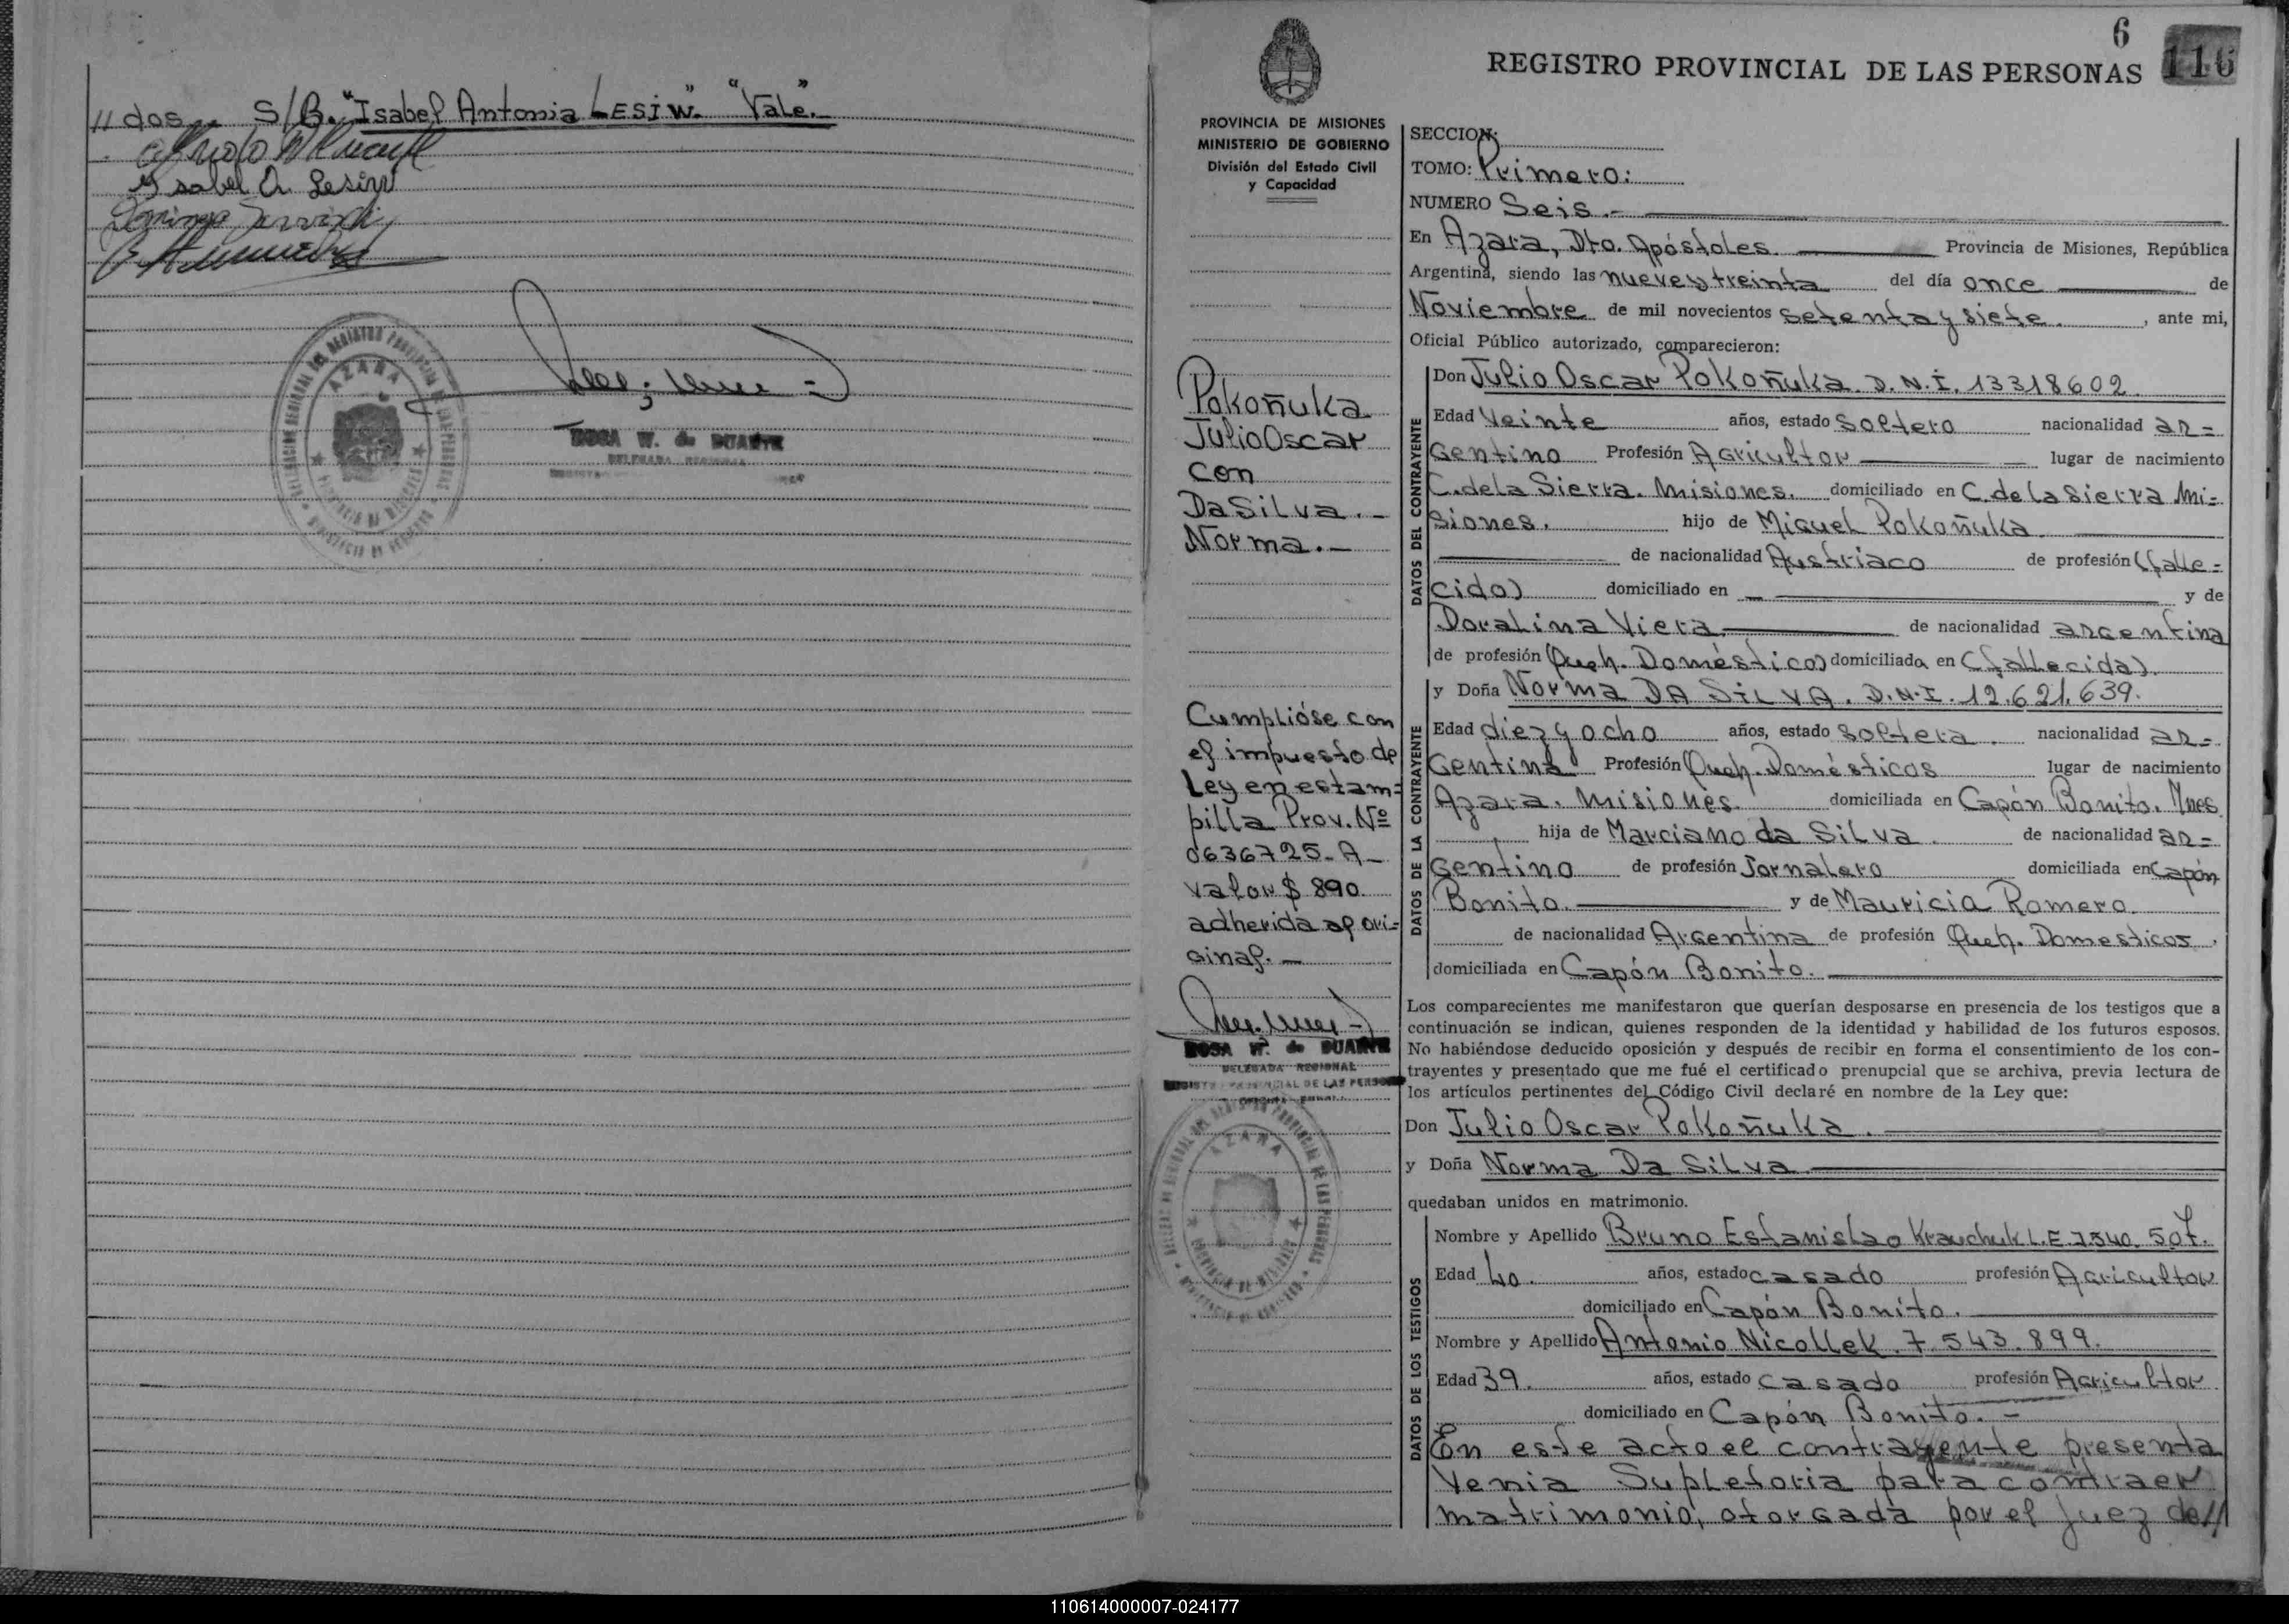 // dos.. S/B. "Isabel Antonia LESIW". "Vale".
Ysabel A. Lesiw
AZARA
ROSA W. de DUARTE
DELEGADA REGIONAL
6
116
REGISTRO PROVINCIAL DE LAS PERSONAS
PROVINCIA DE MISIONES
MINISTERIO DE GOBIERNO
División del Estado Civil
y Capacidad
Pokoñuka
Julio Oscar
con
Da Silva.-
Norma.-
Cumplióse con
el impuesto de
Ley en estam=
pilla Prov. Nº
0636725-A-
valor $ 890
adherida al ori=
ginal.-
ROSA W. de DUARTE
DELEGADA REGIONAL
REGISTRO PROVINCIAL DE LAS PERSONAS
AZARA
SECCION:
TOMO: Primero:
NUMERO Seis.-
En Azara, Dto. Apóstoles. Provincia de Misiones, República
Argentina, siendo las nueve y treinta del día once de
Noviembre de mil novecientos setenta y siete. , ante mi,
Oficial Público autorizado, comparecieron:
DATOS DEL CONTRAYENTE
Don Julio Oscar Pokoñuka. D.N.I. 13318602.
Edad Veinte años, estado soltero nacionalidad ar=
gentino Profesión Agricultor lugar de nacimiento
C. de la Sierra. Misiones. domiciliado en C. de la Sierra Mi=
siones. hijo de Miguel Pokoñuka
de nacionalidad Austriaco de profesión (falle=
cido) domiciliado en - y de
Doralina Viera de nacionalidad argentina
de profesión (Queh. Doméstico) domiciliada en (fallecida).
DATOS DE LA CONTRAYENTE
y Doña Norma DA SILVA. D.N.I. 12.621.639.
Edad diez y ocho años, estado soltera. nacionalidad ar=
gentina Profesión Queh. Domésticos lugar de nacimiento
Azara. Misiones. domiciliada en Capón Bonito. Mnes
hija de Marciano da Silva. de nacionalidad ar=
gentino de profesión Jornalero domiciliada en Capón
Bonito. y de Mauricia Romero.
de nacionalidad Argentina de profesión Queh. Domesticos.
domiciliada en Capón Bonito.
Los comparecientes me manifestaron que querían desposarse en presencia de los testigos que a
continuación se indican, quienes responden de la identidad y habilidad de los futuros esposos.
No habiéndose deducido oposición y después de recibir en forma el consentimiento de los con-
trayentes y presentado que me fué el certificado prenupcial que se archiva, previa lectura de
los artículos pertinentes del Código Civil declaré en nombre de la Ley que:
Don Julio Oscar Pokoñuka.
y Doña Norma Da Silva
quedaban unidos en matrimonio.
DATOS DE LOS TESTIGOS
Nombre y Apellido Bruno Estanislao Krauchuk L.E. 7.540.507.
Edad 40. años, estado casado profesión Agricultor
domiciliado en Capón Bonito.
Nombre y Apellido Antonio Nicollek. 7.543.899.
Edad 39. años, estado casado profesión Agricultor
domiciliado en Capón Bonito.-
En este acto el contrayente presenta
Venia Supletoria para contraer
matrimonio, otorgada por el Juez de//
110614000007-024177